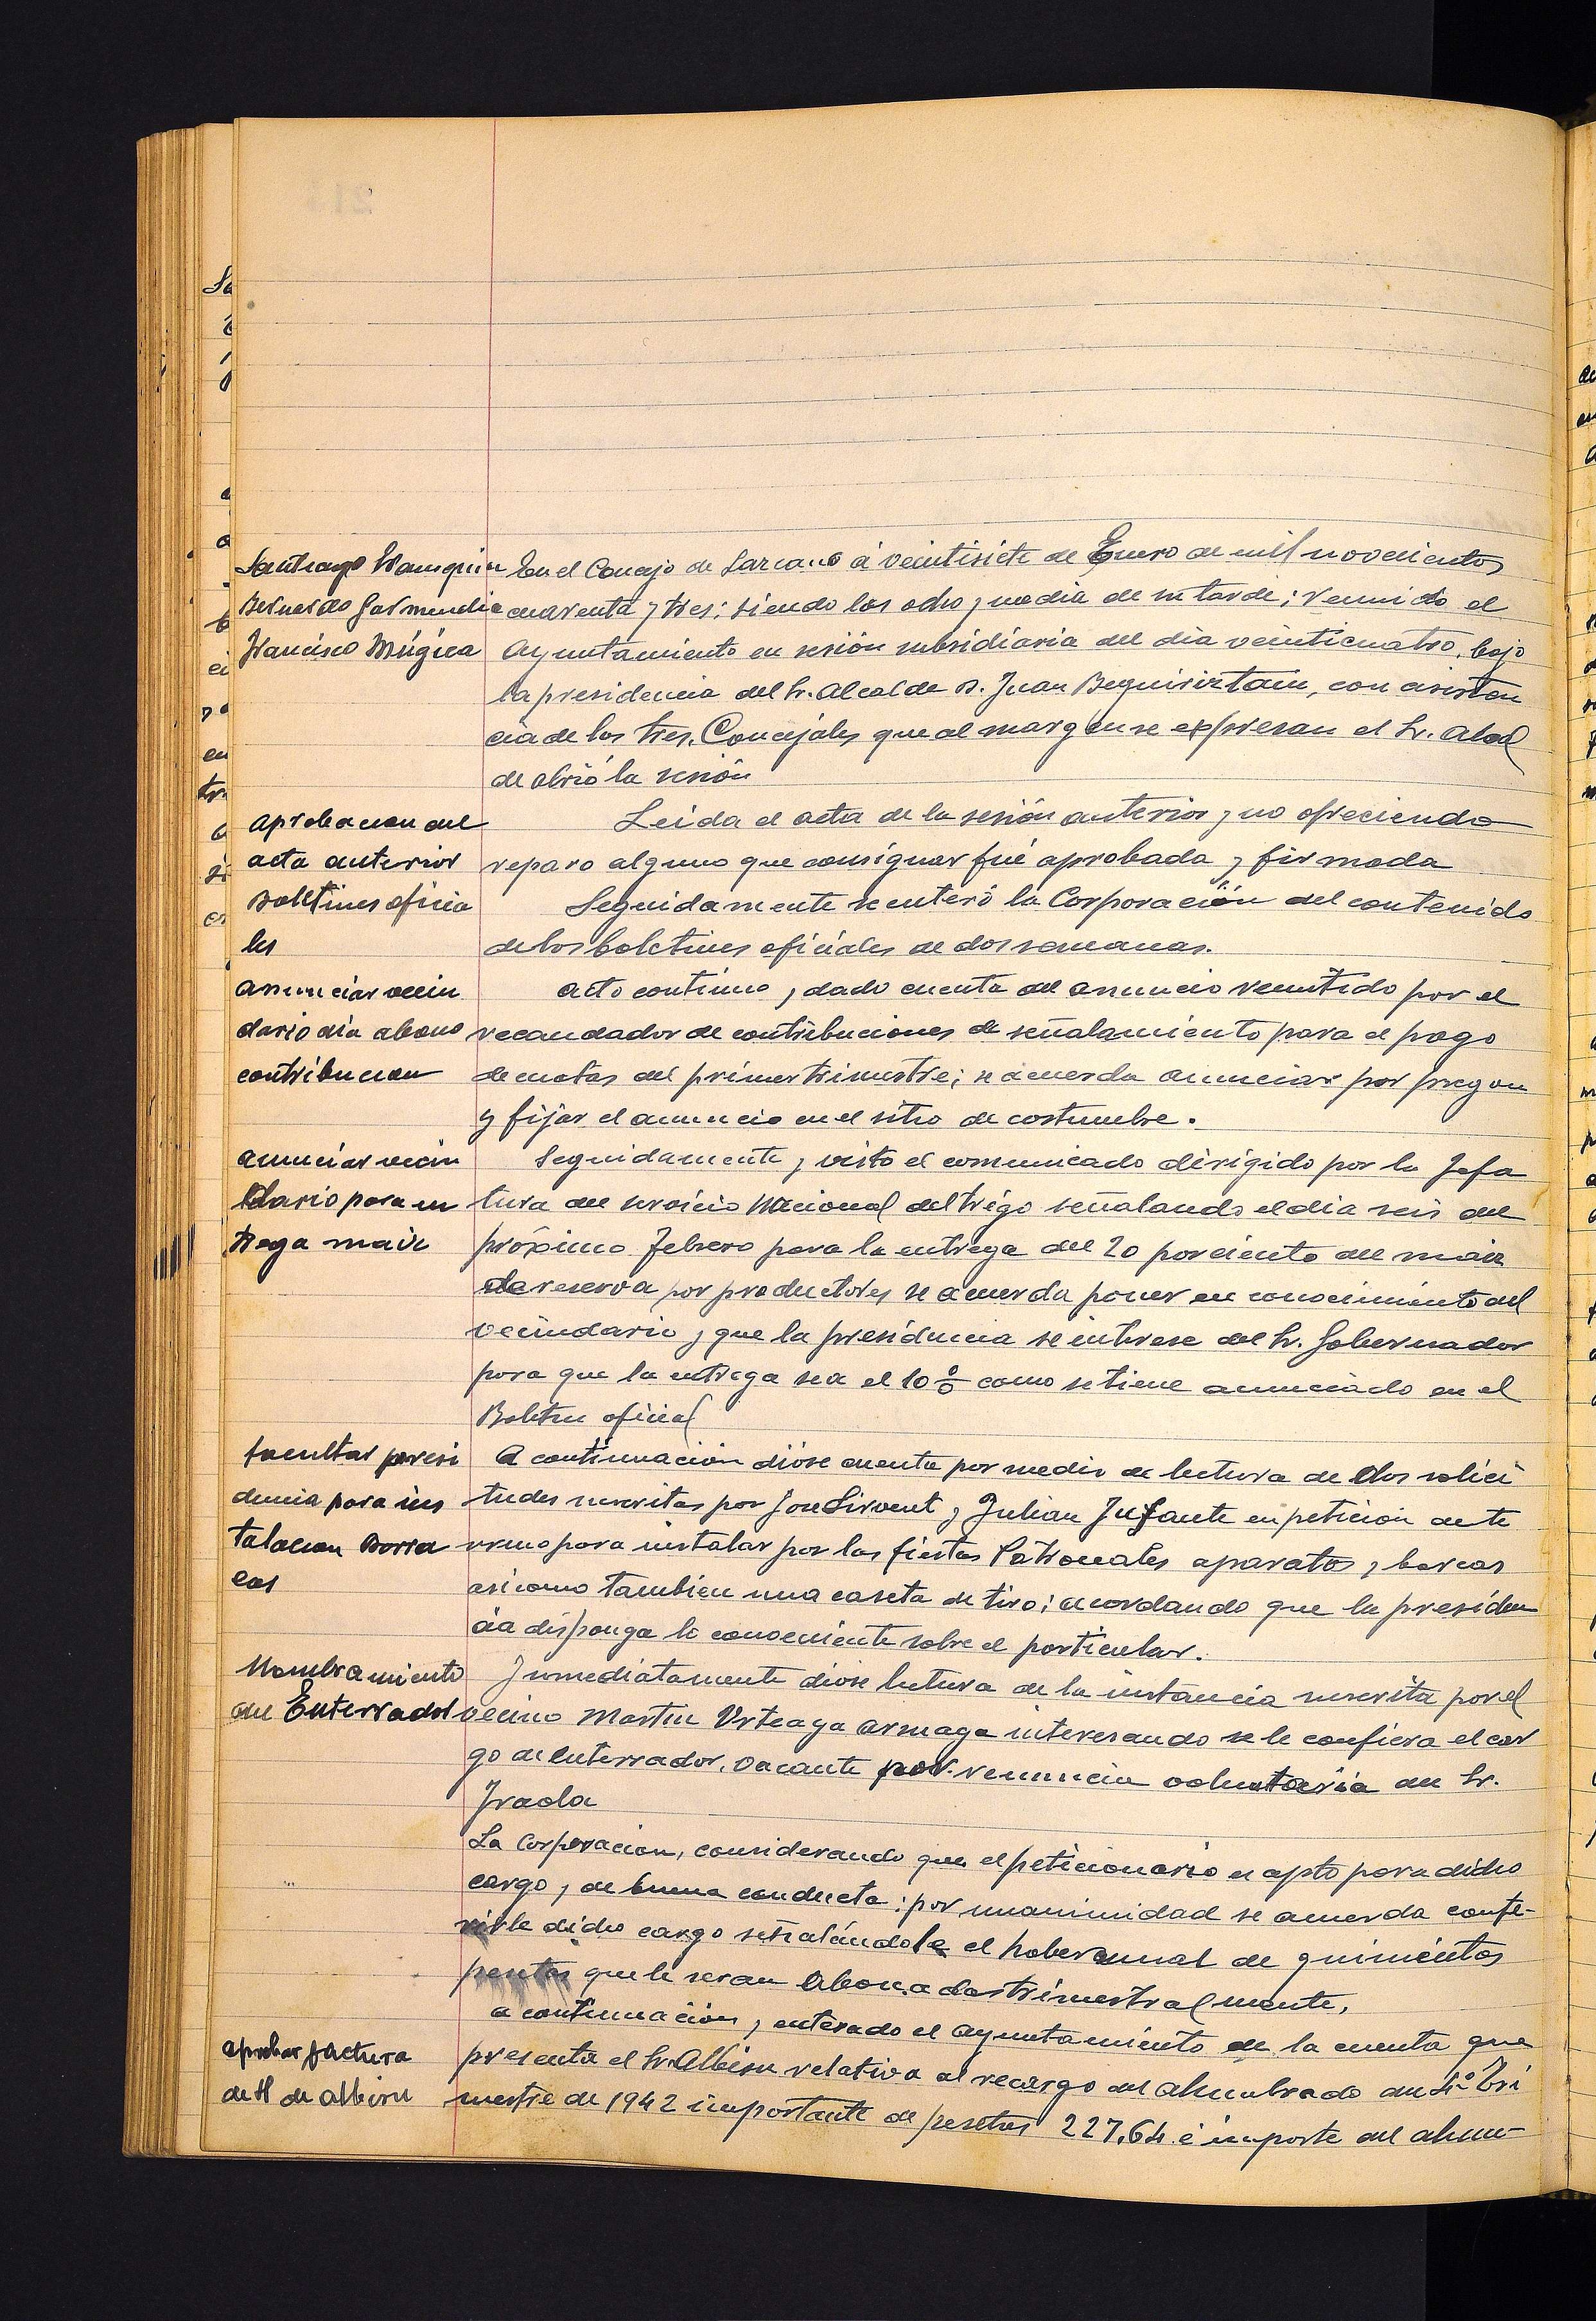 Santiago
Bernardo Garmendia
Francisco Múgica
En el Concejo de Lazcano á veintisiete de Enero de mil novecientos
cuarenta y tres; siendo las ocho y media de su tarde; reunido el
Ayuntamiento en sesión subsidiaria del dia veinticuatro, bajo
la presidencia del Sr. Alcalde D. Juan Beguiristain, con asisten
cia de los tres, Concejales que al margen se expresan el Sr. Alcal
de abrió la sesión
Aprobacion del
acta anterior
Leida el acta de la sesión anterior y no ofreciendo
reparo alguno que consignar fué aprobada y firmada
Boletines oficia
les
Seguidamente se enteró la Corporación del contenido
de los boletines oficiales de dos semanas.
Anunciar vecin
dario dia abono
contribucion
Acto continuo, dado cuenta del anuncio remitido por el
recaudador de contribuciones de señalamiento para el pago
de cuotas del primer trimestre; se acuerda anunciar por pregon
y fijar el anuncio en el sitio de costumbre.
Anunciar vecin
dario para en
trega maiz
Seguidamente, visto el comunicado dirigido por la Jefa
tura del servicio Nacional del trigo señalando el dia seis del
próximo Febrero para la entrega del 20 por ciento del maiz
de reserva por productores se acuerda poner en conocimiento del
vecindario, y que la presidencia se interese del Sr. Gobernador
para que la entrega sea el 10 % como se tiene anunciado en el
Boletin oficial
Facultar presi
dencia para ins
talacion Barra
cas
A continuación dióse cuenta por medio de lectura de dos solici
tudes suscritas por Jose Sirvent y Julian Infante en peticion de te
rreno para instalar por las fiestas Patronales aparatos y barcas
asi como tambien una caseta de tiro; acordando que la presiden
cia disponga lo conveniente sobre el particular.
Nombramiento
de Enterrador
Inmediatamente dióse lectura de la instancia suscrita por el
vecino Martin Urteaga Armaga interesando se le confiera el car
go de enterrador, vacante por renuncia voluntaria del Sr.
Irada
La Corporacion, considerando que el peticionario es apto para dicho
cargo y de buena conducta: por unanimidad se acuerda confe-
rirle dicho cargo señalándole el haber anual de quinientas
pesetas que le seran abonadas trimestralmente,
Aprobar factura
de H de Albisu
a continuación, enterado el Ayuntamiento de la cuenta que
presenta el Sr. Albisu relativa al recargo del alumbrado del 4º Tri
mestre de 1942 importante de pesetas 227,64 é importe del alum-